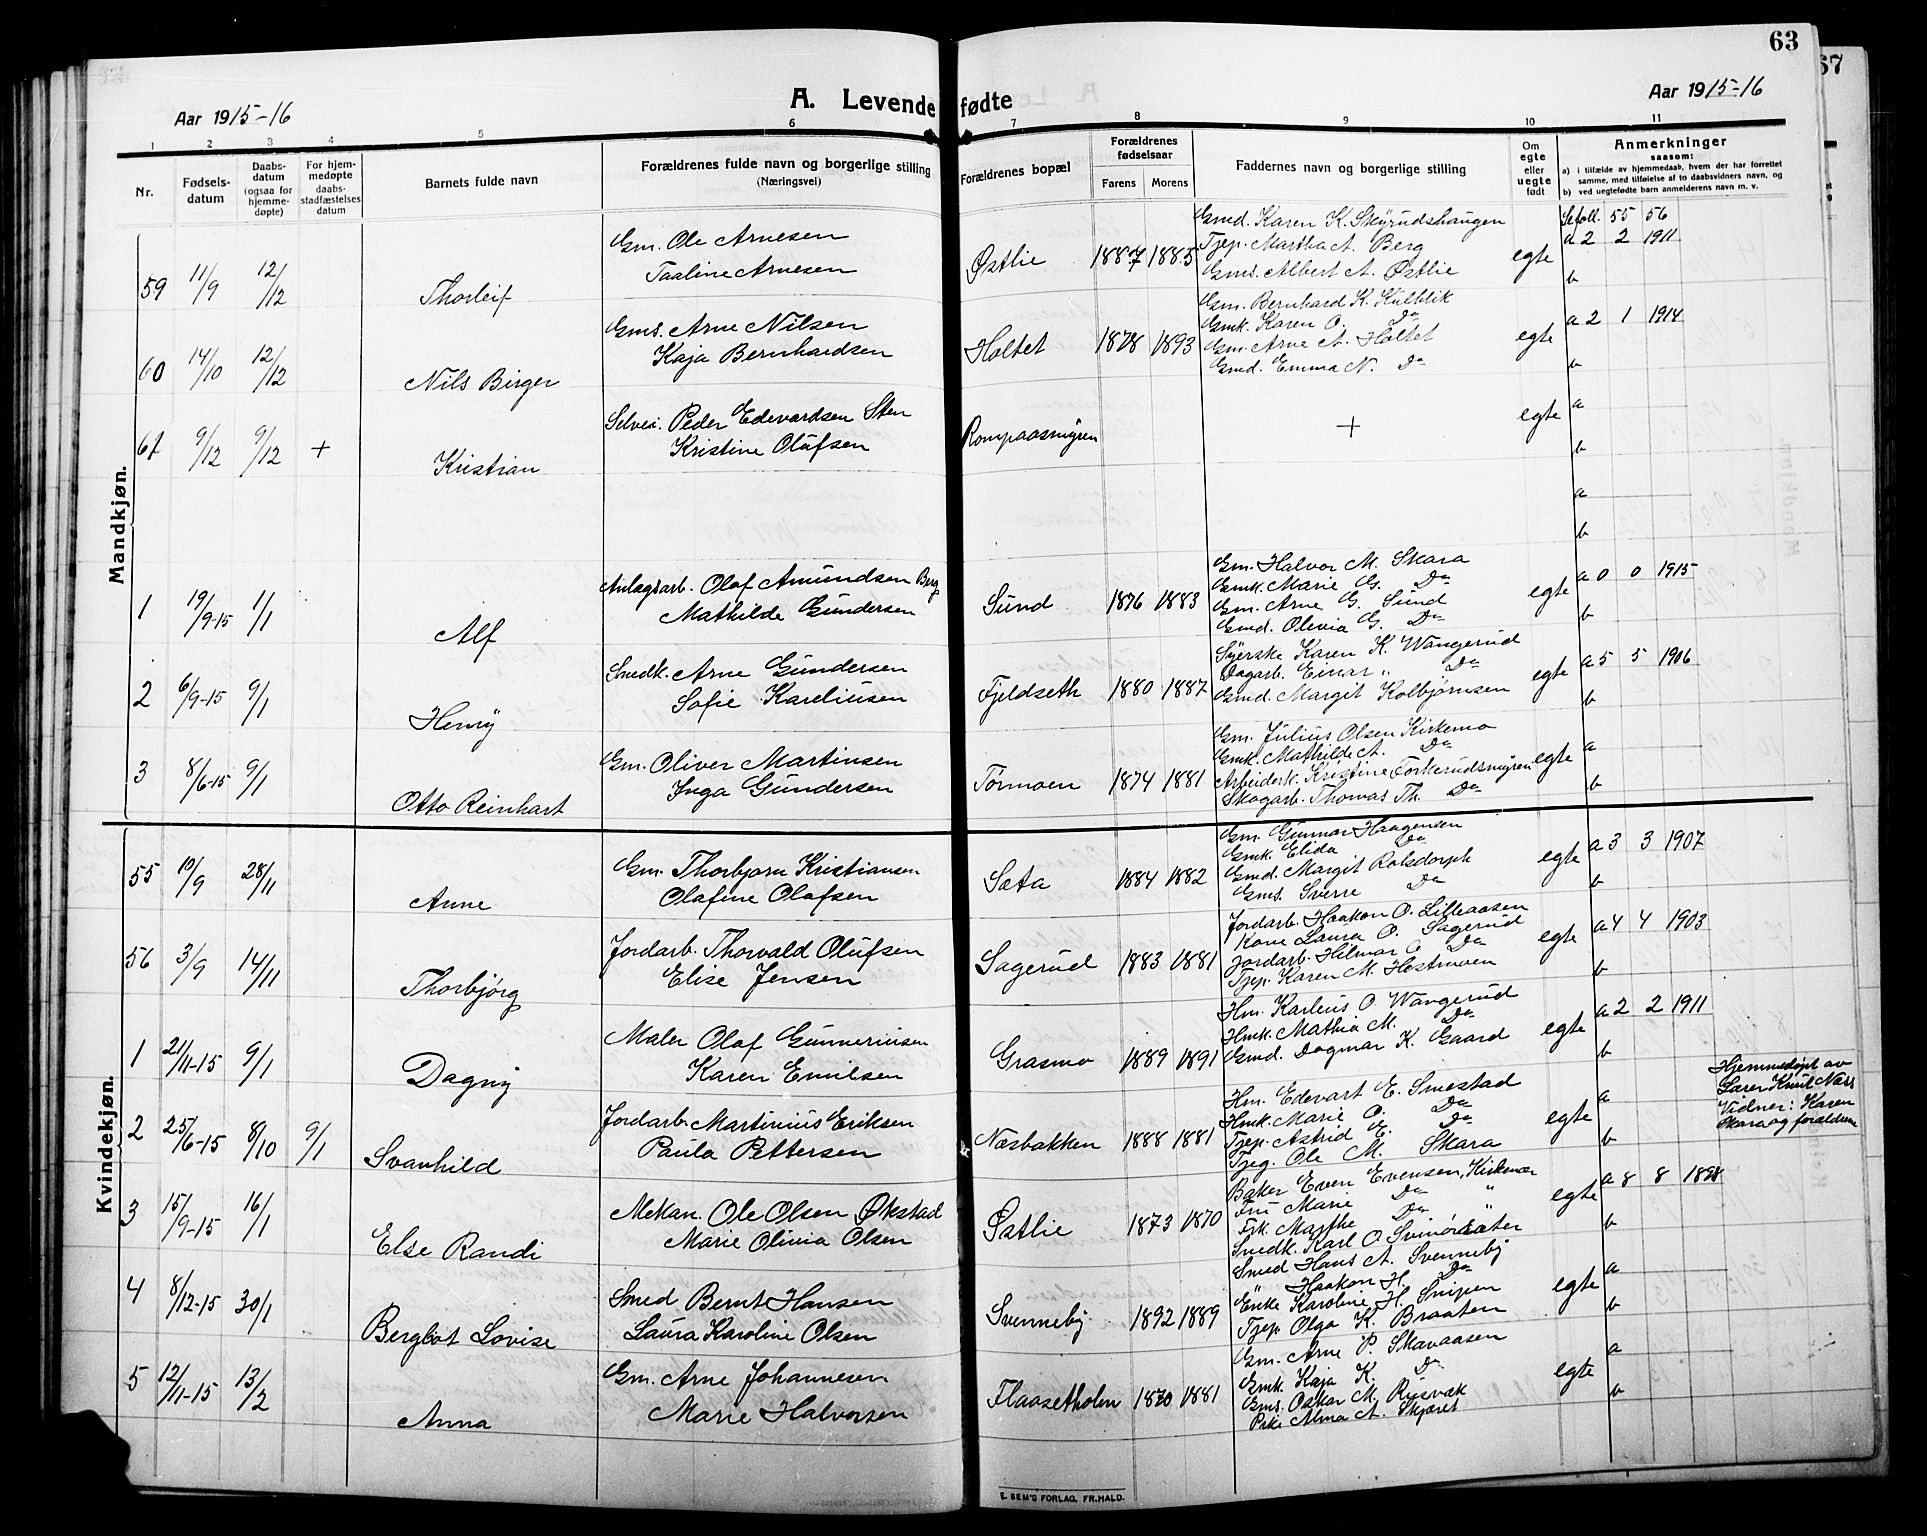 63
67
Aar 1915-16
A. Levende fødte
Aar 1915-16
1 2 3 4 5 6 7 8 9 10 11
Nr.
Fødsels-
datum
Daabs-
datum
(ogsaa for
hjemme-
døpte)
For hjem-
medøpte
daabs-
stadfæstelses
datum
Barnets fulde navn
Forældrenes fulde navn og borgerlige stilling
(Næringsvei)
Forældrenes bopæl
Forældrenes
fødselsaar
Farens
Morens
Faddernes navn og borgerlige stilling
Om
egte
eller
uegte
født
Anmerkninger
saasom:
a) i tilfælde av hjemmedaab, hvem der har forrettet
samme, med tilføielse af to daabsvidners navn, og
b) ved uegtefødte barn anmelderens navn m. v.
Mandkjøn.
59 11/9 12/12 Thorleif
Gm. Ole Arnesen
Taaline Arnesen
Østlie 1887 1885
Gmd. Karen K. Skyrudshaugen
Tjep. Martha A. Berg
Gms. Albert A. Østlie
egte
Se fol. 55 56
a 2 2 1911
b
60 14/10 12/12 Nils Birger
Gms. Arne Nilsen
Kaja Bernhardsen
Holtet 1878 1893
Gm. Bernhard K. Kulblik
Gmk. Karen O. Do
Gm. Arne A. Holtet
Gmd. Emma N. Do
egte
a 2 1 1914
b
61 9/12 9/12 + Kristian
Selvei. Peder Edevardsen Sten
Kristine Olufsen
Rompaasmyren
+
egte
a
b
a
b
1 19/9-15 1/1 Alf
Anlægsarb. Olaf Amundsen Berg
Mathilde Gundersen
Sund 1876 1883
Gm. Halvor M. Skara
Gmk. Marie G. Do
Gm. Arne G. Sund
Gmd. Olevia G. Do
egte
a 0 0 1915
b
2 6/9-15 9/1 Henry
Smedk. Arne Gundersen
Sofie Kareliusen
Fjeldseth 1880 1887
Syerske Karen K. Wangerud
Dagarb. Einar " Do
Gmd. Margit Kolbjørnsen
egte
a 5 5 1906
b
3 8/6-15 9/1 Otto Reinhart
Gm. Oliver Martinsen
Inga Gundersen
Tørmoen 1874 1881
Gm. Julius Olsen Kirkemo
Gmk. Mathilde A. Do
Arbeiderk. Kristine Torkerudsmyren
Skogarb. Thomas Th. Do
egte
a
b
Kvindekjøn.
55 19/9 28/11 Anne
Gm. Thorbjørn Kristiansen
Olafine Olafsen
Sæta 1884 1882
Gm. Gunnar Haagensen
Gmk. Elida Do
Gmd. Margit Rolsdorph
Gms. Sverre Do
egte
a 3 3 1907
b
56 3/9 14/11 Thorbjørg
Jordarb. Thorvald Olufsen
Elise Jensen
Sagerud 1883 1881
Jordarb. Haakon O. Lilleaasen
Kone Laura O. Sagerud
Jordarb. Hilmar O. Do
Tjep. Karen M. Hestmoen
egte
a 4 4 1903
b
1 21/11-15 9/1 Dagny
Maler Olaf Gunneriusen
Karen Emilsen
Grasmo 1889 1891
Hm. Karlius O. Wangerud
Hmk. Mathia M. Do
Gmd. Dagmar K. Gaard
egte
a 2 2 1911
b
2 25/6-15 8/10 9/1 Svanhild
Jordarb. Martinius Eriksen
Paula Pettersen
Næsbakken 1888 1881
Hm. Edevart E. Smestad
Hmk. Marie O. Do
Tjep. Astrid E. Do
Tjeg. Ole M. Skara
egte
a
b
Hjemmedøpt av
Lærer Knut Næss
Vidner: Karen
Skara og forældrene
3 15/9-15 16/1 Else Randi
Mekan. Ole Olsen Økstad
Marie Olivia Olsen
Østlie 1873 1870
Baker Even Evensen, Kirkenær
Fru Marie Do "
Frk. Marthe Do "
Smedk. Karl O. Svinørsæter
egte
a 8 8 1898
b
4 8/12-15 30/1 Bergljot Lovise
Smed Bernt Hansen
Laura Karoline Olsen
Svenneby 1892 1889
Smed Hans A. Svenneby
" Haakon H. Do
Enke Karoline H. Snipen
Tjep. Olga K. Braaten
egte
a
b
5 12/11-15 13/2 Anna
Gm. Arne Johannesen
Marie Halvorsen
Flaasetholen 1870 1881
Gm. Arne P. Skavaasen
Gmk. Kaja K. Do
Gms. Oskar M. Rusvæk
Pike Alma A. Skjæret
egte
a
b
E. SEM'S FORLAG, FR.HALD.